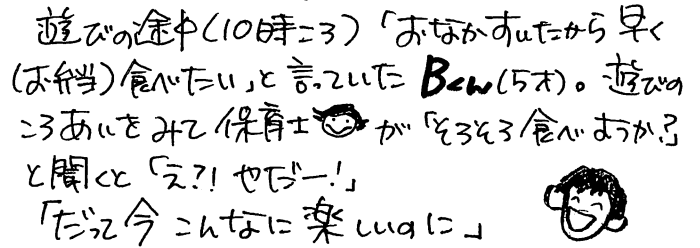 遊びの途中(10時ころ)「おなかすいたから 早く
(お弁当)食べたい」と 言っていた Bくん(5才)。遊びの
ころあいを みて 保育士が「そろそろ 食べようか?」
と聞くと「え?! やだー!」
「だって 今 こんなに 楽しいのに」